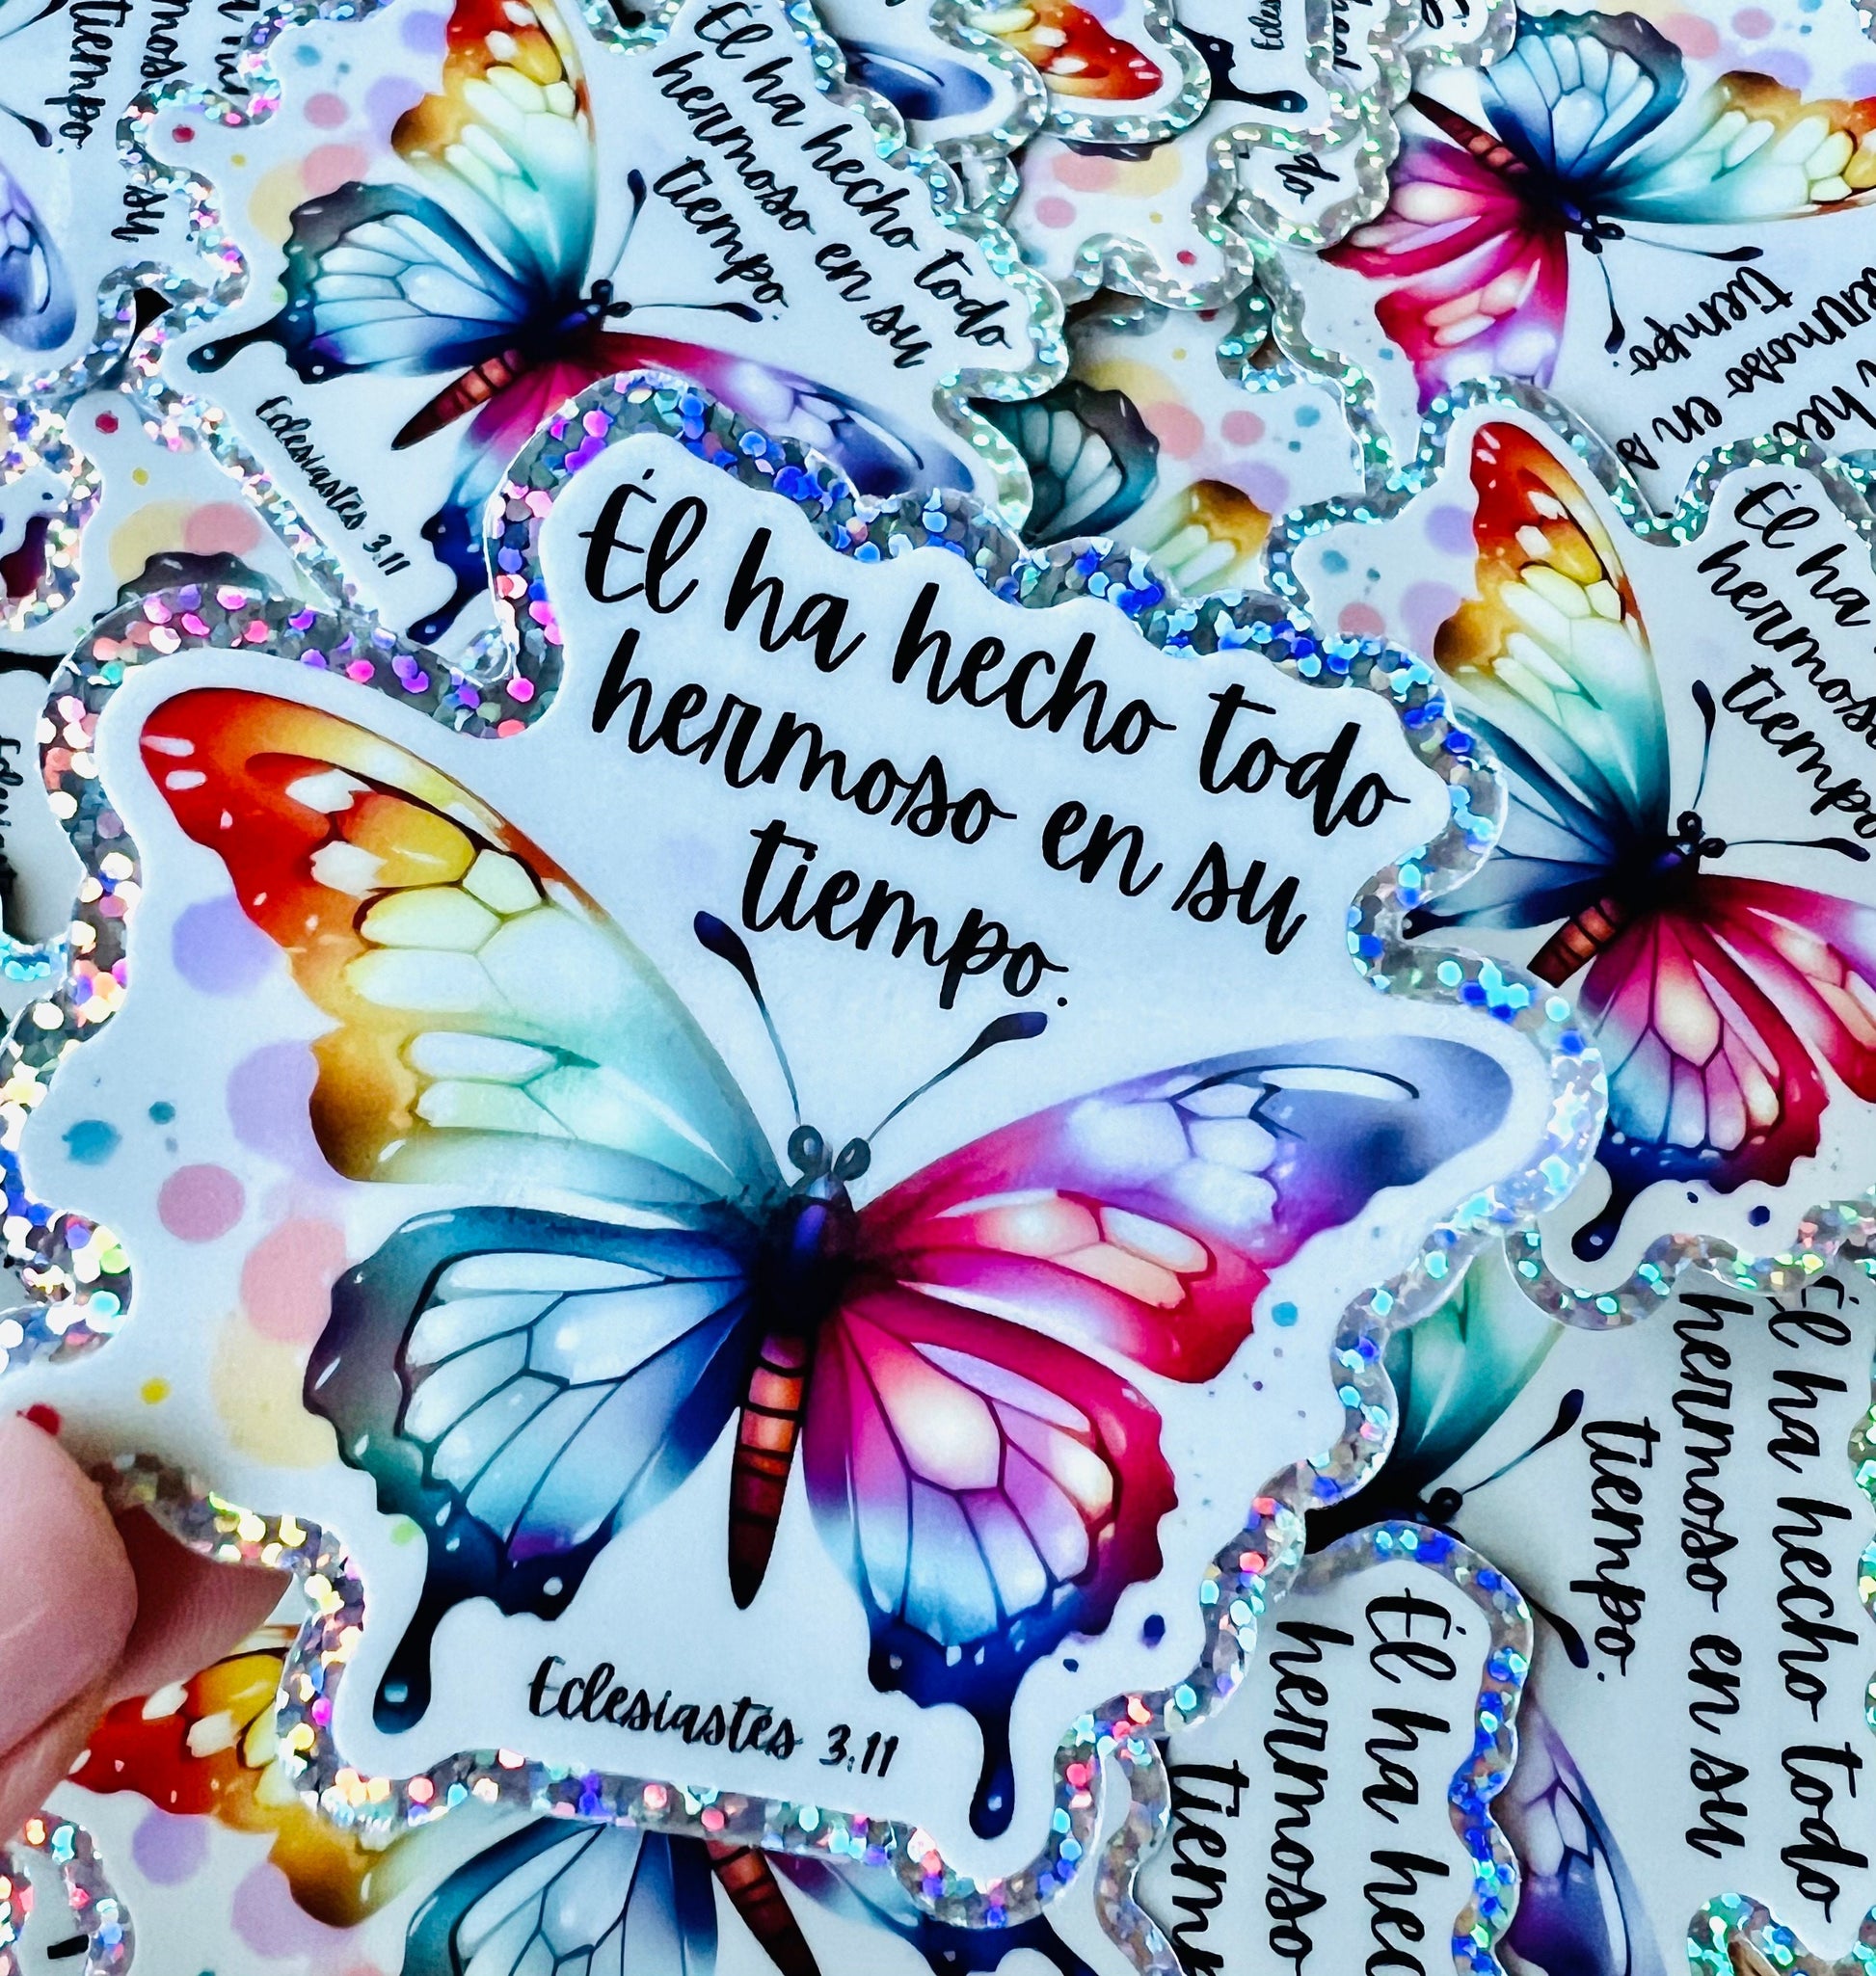 Él ha hecho todo
hermoso en su
tiempo.
Eclesiastés 3:11
Él ha hecho todo
hermoso en su
tiempo.
Eclesiastes 3:11
tiempo.
Él ha
hermoso
tiempo
tiempo.
Él ha hecho todo
hermoso en su
tiempo.
Él ha hec
hermoso
tiemp